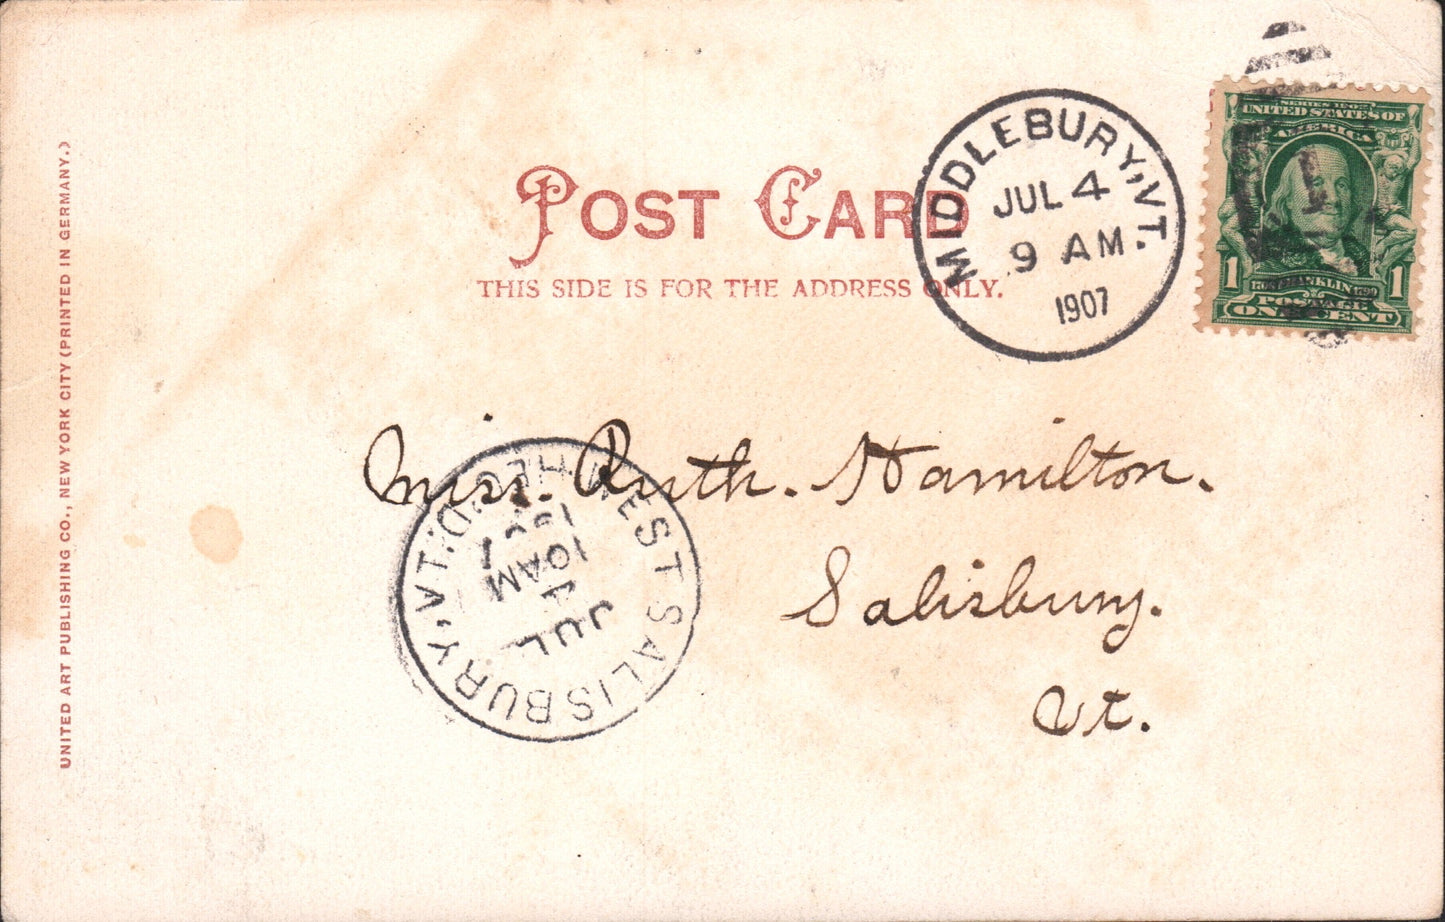 POST CARD
THIS SIDE IS FOR THE ADDRESS ONLY.
MIDDLEBURY, VT.
JUL 4
9 AM
1907
SERIES 1902
UNITED STATES OF
AMERICA
1 1
FRANKLIN
POSTAGE
ONE CENT
Miss. Ruth. Hamilton.
Salisbury.
Vt.
REC'D.
WEST SALISBURY, VT.
JUL
4
10 AM
1907
UNITED ART PUBLISHING CO., NEW YORK CITY (PRINTED IN GERMANY.)